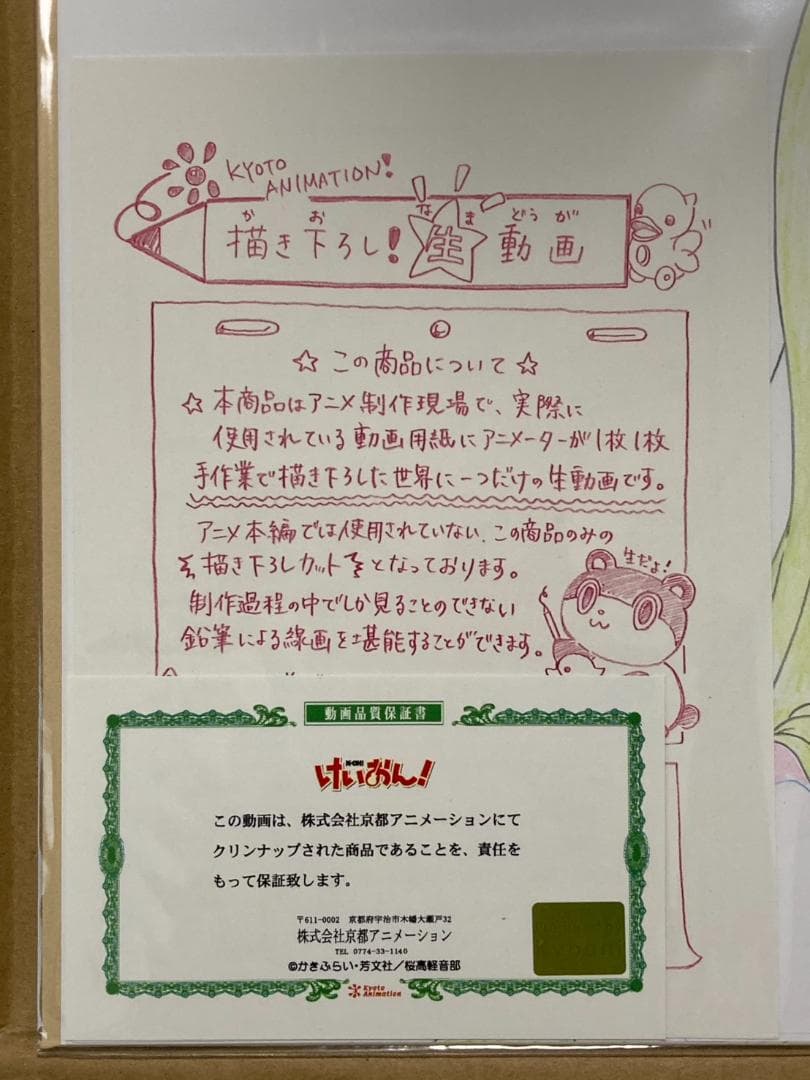 KYOTO
ANIMATION!
か お な ま どうが
描き下ろし! 生 動画
☆ この商品について ☆
☆ 本商品はアニメ制作現場で、実際に
使用されている動画用紙にアニメーターが1枚1枚
手作業で描き下ろした世界に一つだけの生動画です。
アニメ本編では使用されていない、この商品のみの
描き下ろしカットとなっております。
生だよ!
制作過程の中でしか見ることのできない
鉛筆による線画を堪能することができます。
動画品質保証書
K-ON!
けいおん!
この動画は、株式会社京都アニメーションにて
クリンナップされた商品であることを、責任を
もって保証致します。
〒611-0002 京都府宇治市木幡大瀬戸32
株式会社京都アニメーション
TEL 0774-33-1140
©かきふらい・芳文社／桜高軽音部
Kyoto
Animation